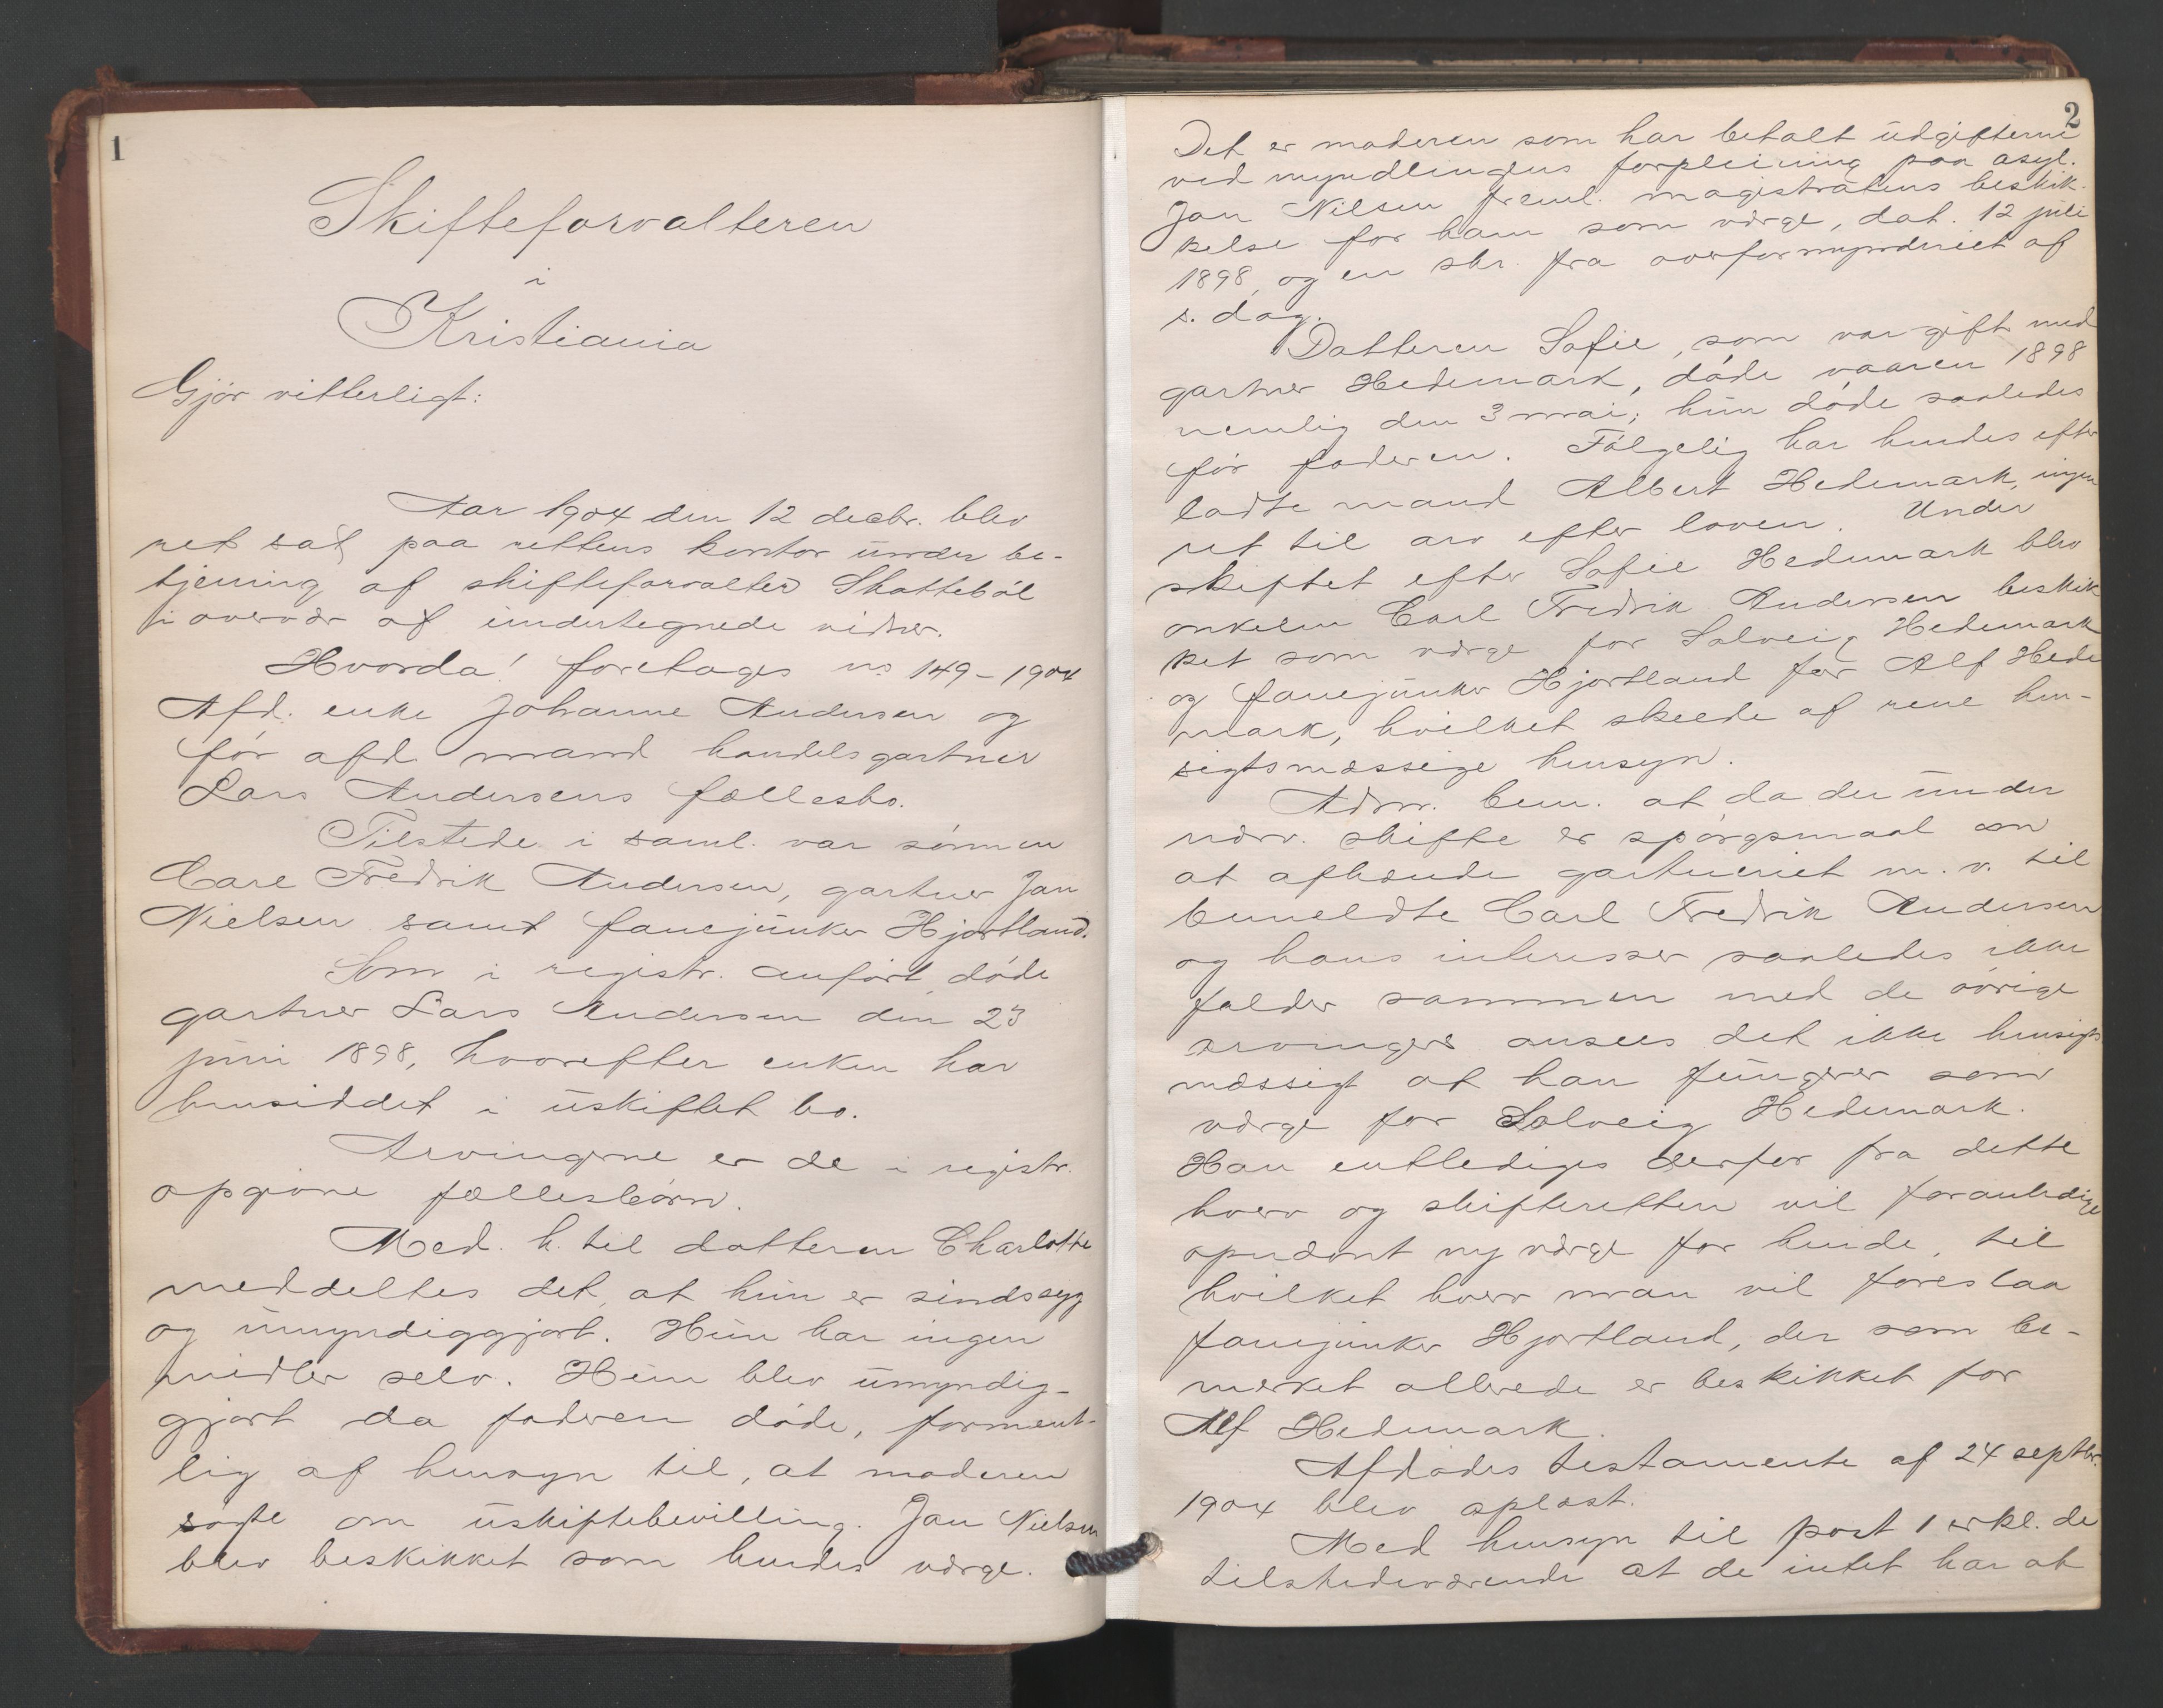 1
Skifteforvalteren
i
Kristiania
Gjör vitterligt:
Aar 1904 den 12 decbr. blev
ret sat paa rettens kontor under be-
tjening af skifteforvalter Skattebøl
i overvær af undertegnede vidner.
Hvorda! foretoges no 149-1904
Afd. enke Johanne Andersen og
før afd. mand handelsgartner
Lars Andersens fællesbo.
Tilstede i saml. var sönnen
Carl Fredrik Andersen, gartner Jan
Nielsen samt fanejunker Hjortland.
Som i registr. anført, døde
gartner Lars Andersen den 23
juni 1898, hvorefter enken har
hensiddet i uskiftet bo.
Arvingerne er de i registr.
opgivne fællesbörn.
Med. h. til datteren Charlotte
meddeltes det, at hun er sindssyg
og umyndiggjort. Hun har ingen
midler selv. Hun blev umyndig-
gjort da faderen døde, forment-
lig af hensyn til, at moderen
søgte om uskiftebevilling. Jan Nielsen
blev beskikket som hendes værge.
2
Det er moderen som har betalt udgifterne
ved myndlingens forpleining paa asyl.
Jan Nilsen freml. magistratens beskik-
kelse for ham som værge, dat. 12 juli
1898, og en skr. fra overformynderiet af
s. dag.
Datteren Sofie, som var gift med
gartner Hedemark, døde vaaren 1898
nemlig den 3 mai; hun døde saaledes
før faderen. Følgelig har hendes efter
ladte mand Albert Hedemark, ingen
ret til arv efter loven. Under
skiftet efter Sofie Hedemark blev
onkelen Carl Fredrik Andersen beskik
ket som værge for Solveig Hedemark
og fanejunker Hjortland for Alf Hede
mark, hvilket skeede af rene hen-
sigtsmæssige hensyn.
Adm. bem. at da der under
nærv. skifte er spørgsmaal om
at afhænde gartneriet m. v. til
bemeldte Carl Fredrik Andersen
og hans interesser saaledes ikke
falder sammen med de øvrige
arvingers ansees det ikke hensigts
mæssigt at han fungerer som
værge for Solveig Hedemark.
Han entlediges derfor fra dette
hverv og skifteretten vil foranledige
opnævnt ny værge for hende, til
hvilket hverv man vil foreslaa
fanejunker Hjortland, der som be-
mærket allerede er beskikket for
Alf Hedemark.
Afdødes testamente af 24 septbr.
1904 blev oplæst.
Med hensyn til post 1 erkl. de
tilstedeværende at de intet har at